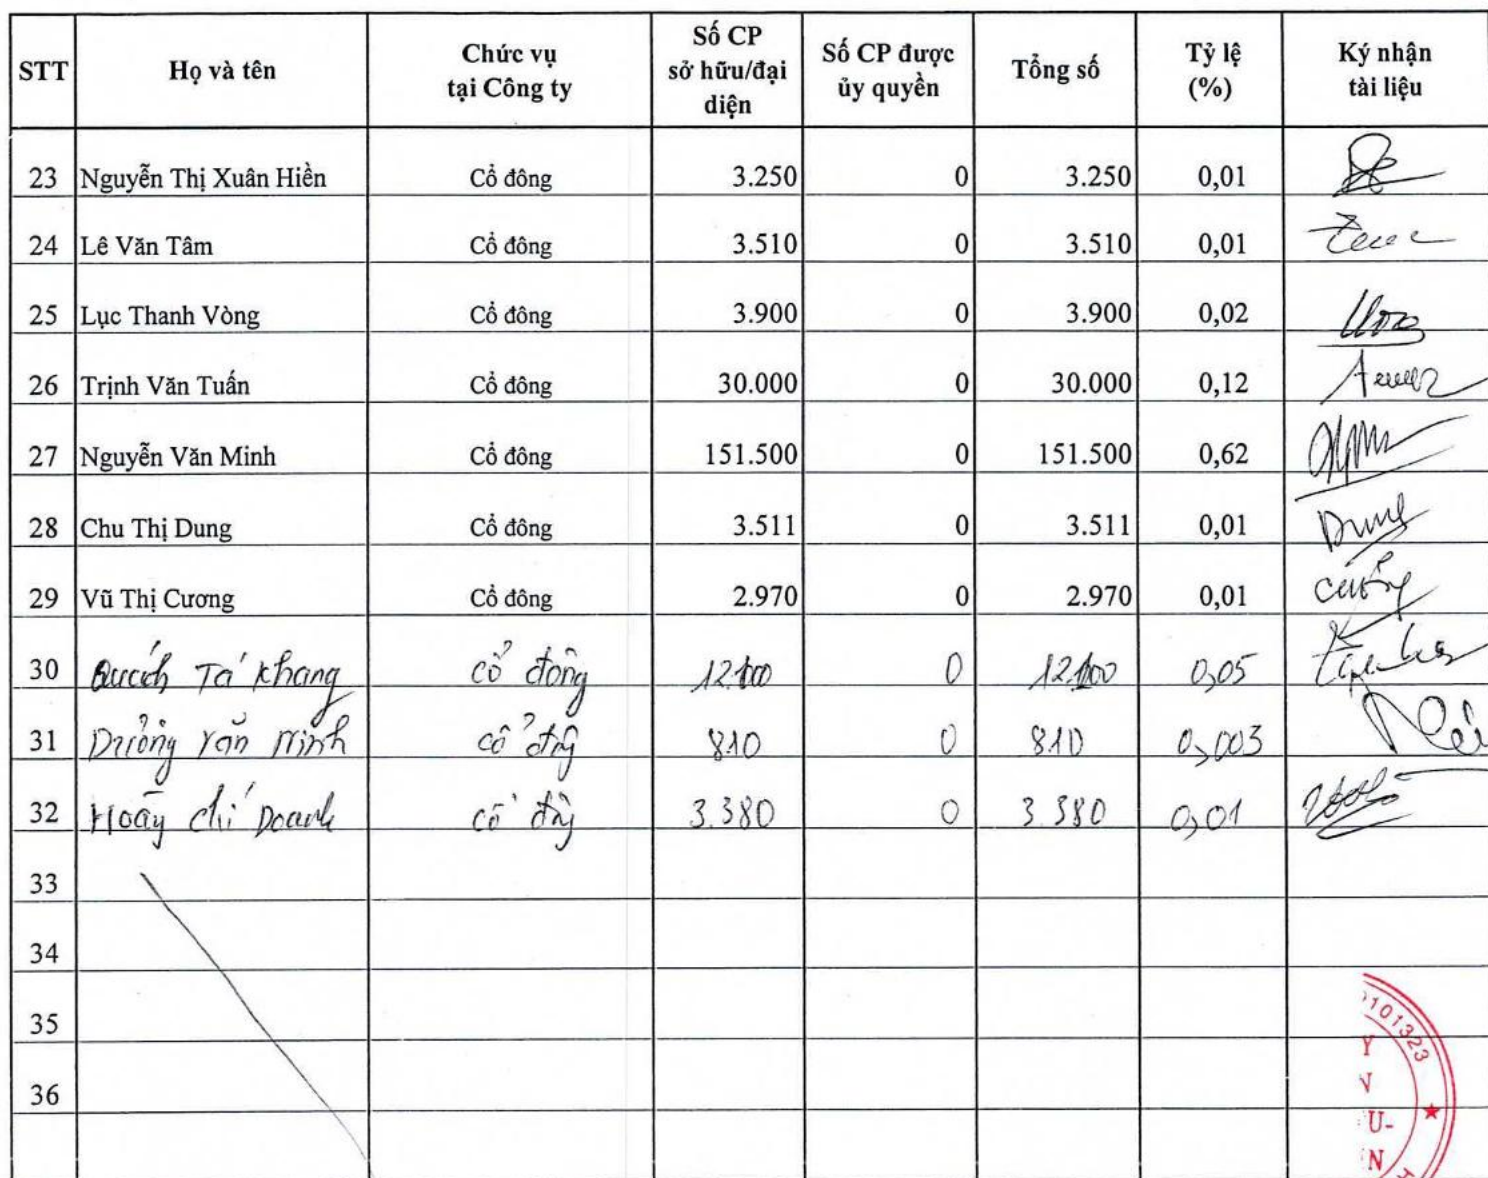 STT Họ và tên Chức vụ tại Công ty Số CP sở hữu/đại diện Số CP được ủy quyền Tổng số Tỷ lệ (%) Ký nhận tài liệu
23 Nguyễn Thị Xuân Hiền Cổ đông 3.250 0 3.250 0,01
24 Lê Văn Tâm Cổ đông 3.510 0 3.510 0,01
25 Lục Thanh Vòng Cổ đông 3.900 0 3.900 0,02
26 Trịnh Văn Tuấn Cổ đông 30.000 0 30.000 0,12
27 Nguyễn Văn Minh Cổ đông 151.500 0 151.500 0,62
28 Chu Thị Dung Cổ đông 3.511 0 3.511 0,01 Dung
29 Vũ Thị Cương Cổ đông 2.970 0 2.970 0,01 Cương
30 Quách Tá Khang cổ đông 12.100 0 12.100 0,05
31 Dương Văn Minh cổ đông 810 0 810 0,003
32 Hoàng Chí Doanh cổ đông 3.380 0 3.380 0,01
33
34
35
36
0101323
Y
V
U-
N